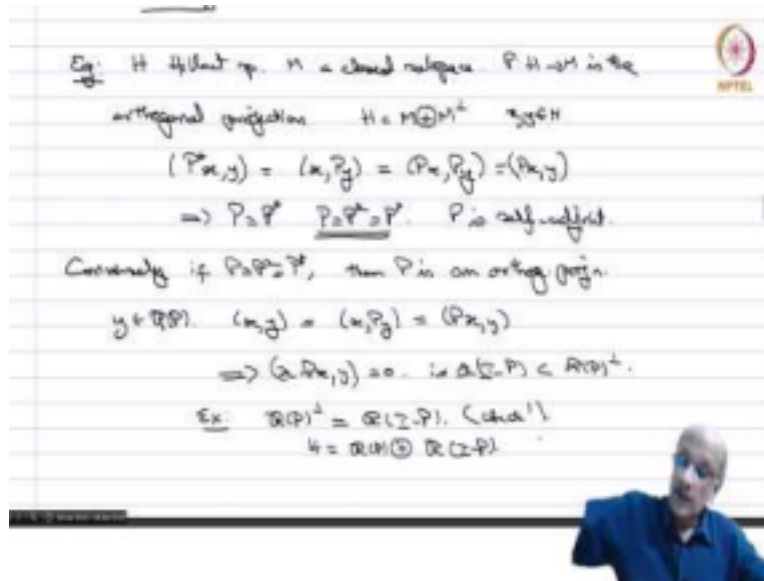 Eg: H Hilbert sp. M a closed subspace. P: H→M is the
NPTEL
orthogonal projection H = M⊕M^⊥ x,y∈H
(P*x,y) = (x,Py) = (Px,Py) = (Px,y)
⇒ P=P* P=P²=P*. P is self-adjoint.
Conversely if P=P²=P*, then P is an orthog. projn.
y∈R(P). (x,y) = (x,Py) = (Px,y)
⇒ (x-Px,y)=0. ie R(I-P) ⊂ R(P)^⊥.
Ex: R(P)^⊥ = R(I-P). (check!)
H = R(P)⊕R(I-P)